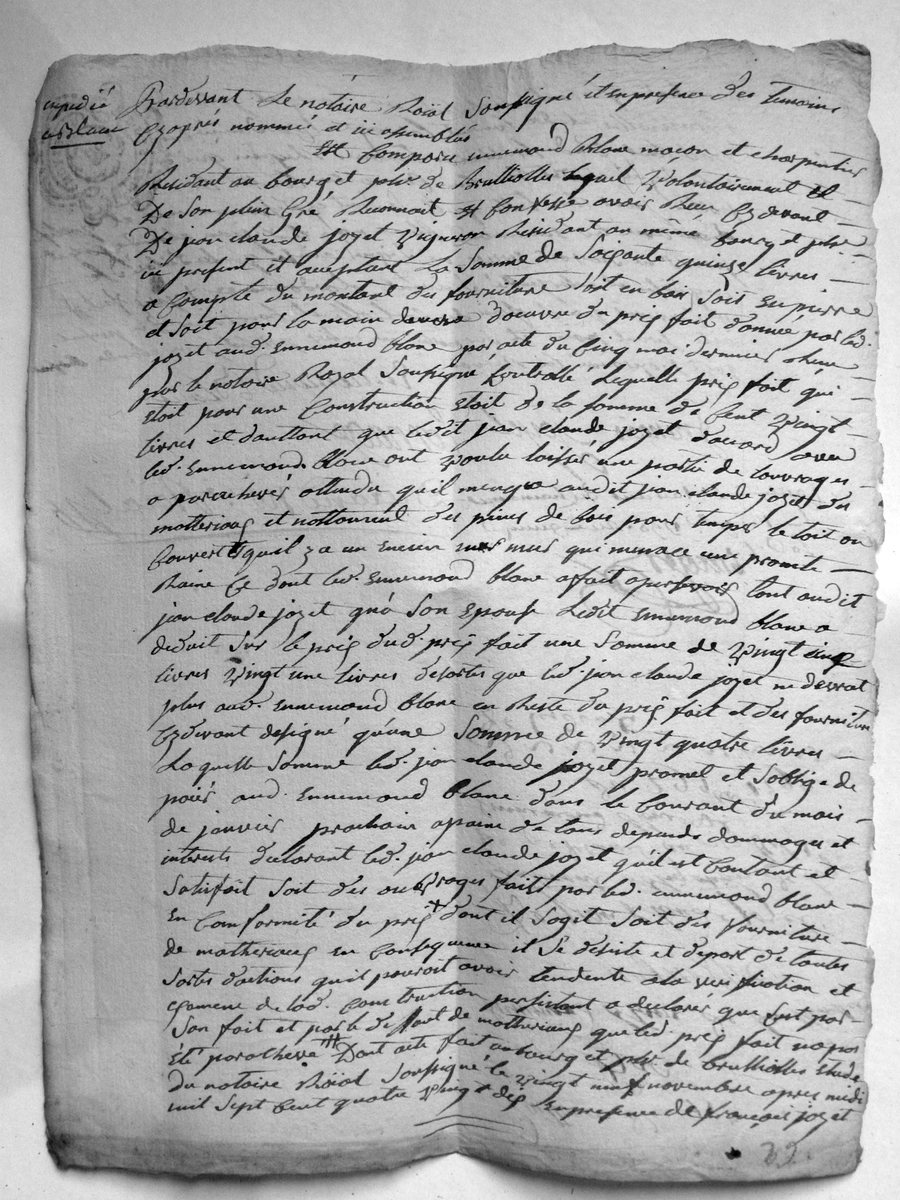 expedié
a Blanc
Pardevant Le notaire Roïal Soussigné et en presence des temoins
Cy après nommés et ici assemblés
Est Comparu ennemond Blanc maçon et charpentier
Residant au bourg et psse de Brulliolles lequel Volontairement et
De Son plein Gré Reconnoit et Confesse avoir Reçu Cy devant
De jean claude jozet Vigneron Residant au même bourg et psse
ici present et acceptant La Somme de Soixante quinze livres
a Compte du montant des fourniture Soit en bois Soit en pierre
et Soit pour la main d'oeuvre du prix fait donnée par led.
jozet aud. ennemond blanc par acte du Cinq mai dernier Reçu
par le notaire Royal Soussigné Controllé Lequelle prix fait qui
etoit pour une Construction etoit de la somme de Cent Vingt
livres et dauttant que ledit jean claude jozet d'accord avec
led. ennemond blanc ont Voulu laisser une partie de louvrages
a parachever attendu qu'il manque audit jean claude jozet des
matteriaux et nottament des pieces de bois pour le toit ou
Couvert et quil y a un encien mur qui menace une promte
Ruine Ce dont led. ennemond blanc a fait apersevoir tant audit
jean claude jozet qu'a Son epouse Ledit ennemond blanc a
deduit sur le prix dud. prix fait une Somme de Vingt cinq
livres Vingt une livres desortes que led. jean claude jozet ne devrat
plus aud. ennemond blanc en Reste du prix fait et des fourniture
Cy devant designé qu'une Somme de Vingt quatre livres
Laquelle Somme led. jean claude jozet promet et s'oblige de
païer aud. ennemond blanc dans le Courant du mois
de janvier prochain a paine de tous depends dommages et
interets declarant led. jean claude jozet qu'il est Contant et
Satisfait Soit des ouvrages faits par led. ennemond blanc
en Conformité du prix + dont il s'agit Soit des Fourniture
de matheriaux en Consequence il Se desiste et depart de toutes
Sortes d'actions qu'il pouroit avoir tendente a la verification et
examene de lad. Construction persistant a declarer que C'est par
Son fait et par le deffaut de matheriaux que led. prix fait na pas
été parachevé Dont acte fait au bourg et psse de brulliolles etude
du notaire Roïal Soussigné le Vingt neuf novembre apres midi
mil Sept Cent quatre Vingt dix en presence de françois jozet